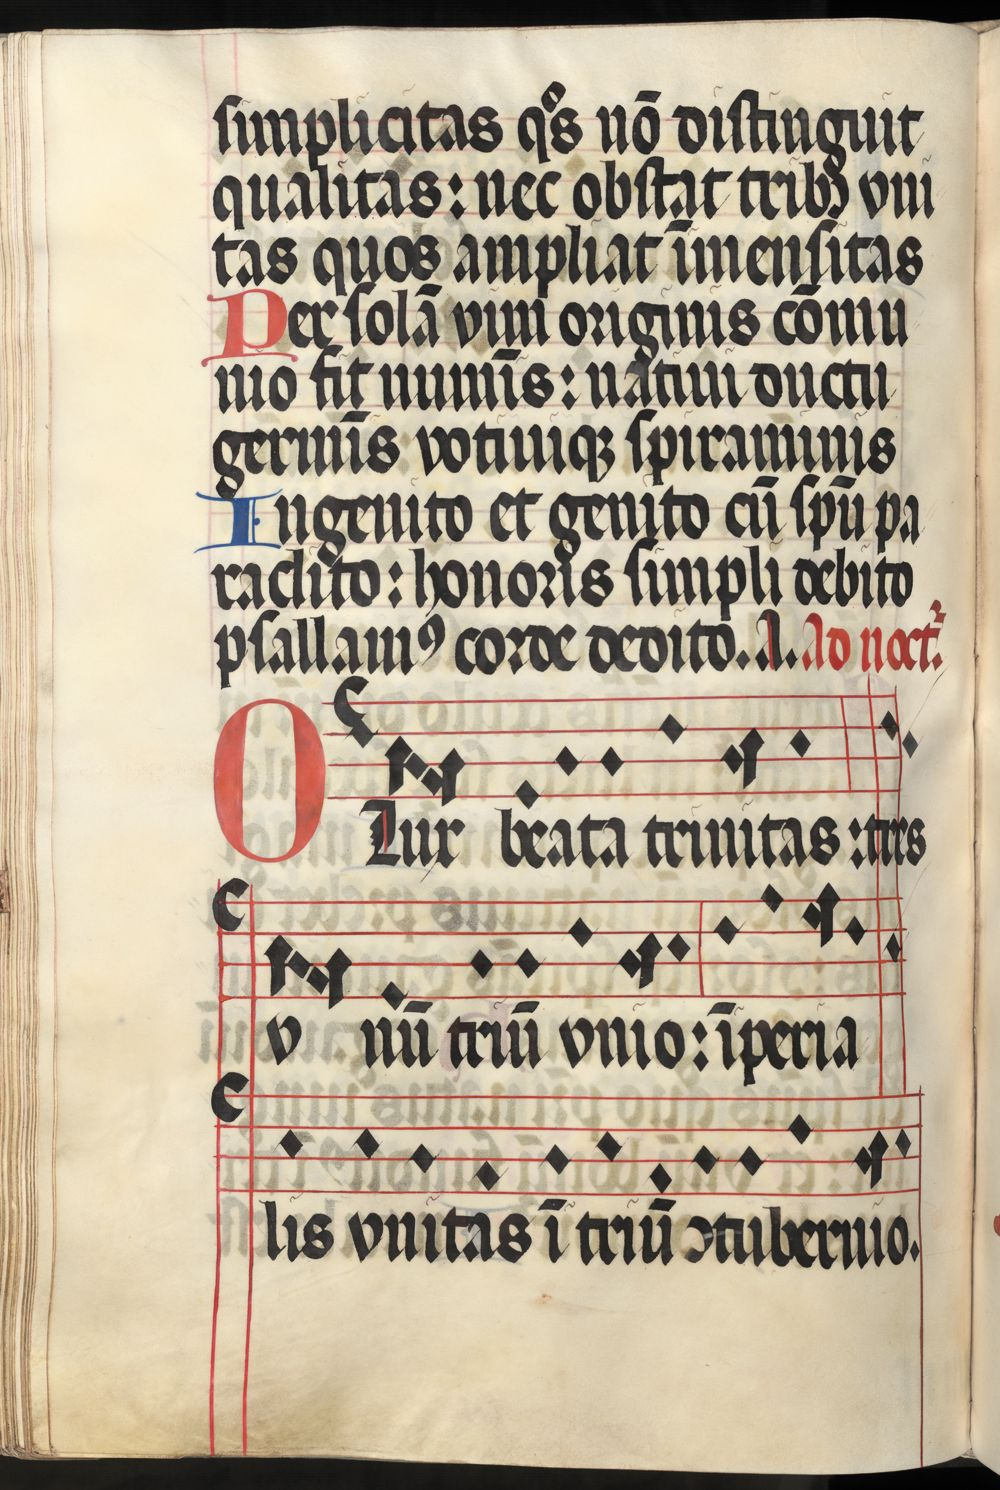 simplicitas qͦs nō distinguit
qualitas : nec obstat tribꝫ vni
tas quos ampliat īmensitas
Per solā vim originis cōmu
nio fit numīs : natiui ductu
germīs votiuiqꝫ spiraminis
Ingenito et genito cū spū pa
raclito : honoris simpli debito
psallamꝰ corde dedito. A. Ad noct᷑.
O Lux beata trinitas : tres
v nū triū vnio : īperia
lis vnitas ī triū ꝯtubernio.